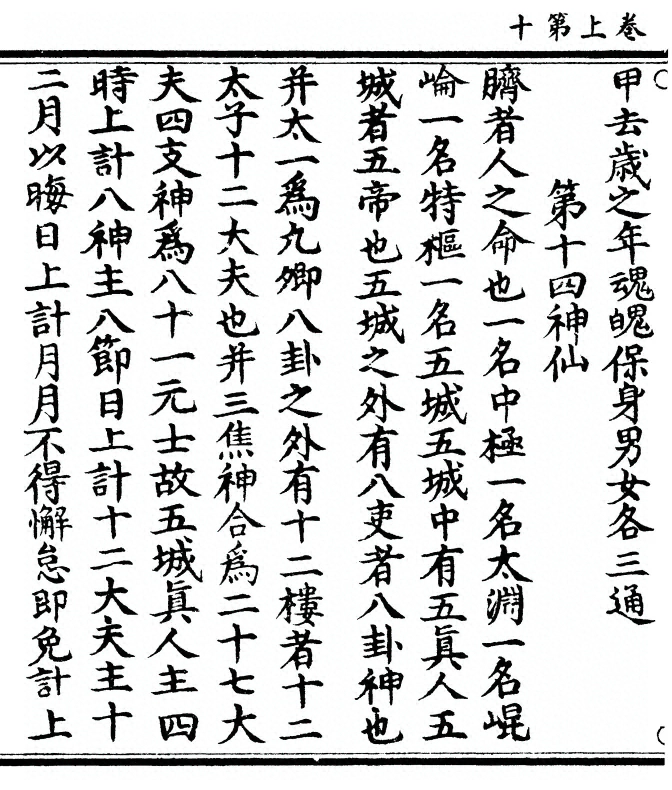 卷上第十
甲去歲之年魂魄保身男女各三通
第十四神仙
臍者人之命也一名中極一名太淵一名崐
崘一名特樞一名五城五城中有五眞人五
城者五帝也五城之外有八吏者八卦神也
并太一爲九卿八卦之外有十二樓者十二
太子十二大夫也并三焦神合爲二十七大
夫四支神爲八十一元士故五城眞人主四
時上計八神主八節日上計十二大夫主十
二月以晦日上計月月不得懈怠即免計上